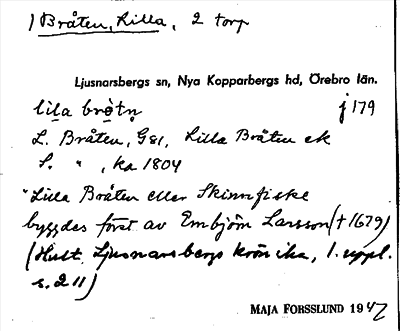 1 Bråten, Lilla, 2 torp
Ljusnarsbergs sn, Nya Kopparbergs hd, Örebro län.
lila brötn j 179
L. Bråten, G81, Lilla Bråten ek
S. " , ka 1804
"Lilla Bråten eller Skinnfiske
byggdes först av Embjörn Larsson (†1679)
(Hult Ljusnarsbergs krönika, 1. uppl.
s. 211)
MAJA FORSSLUND 1947